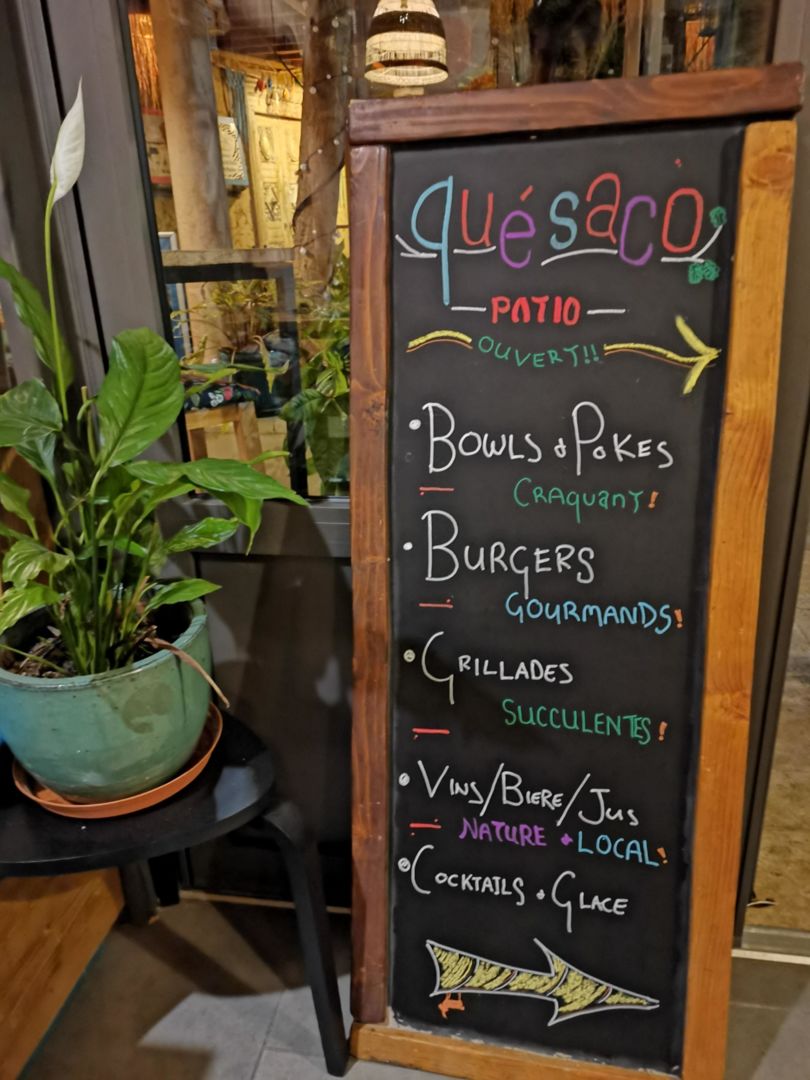 quésaco
PATIO
OUVERT!!
BOWLS & POKES
CRAQUANT!
BURGERS
GOURMANDS!
GRILLADES
SUCCULENTES!
VINS/BIERE/JUS
NATURE + LOCAL!
COCKTAILS • GLACE